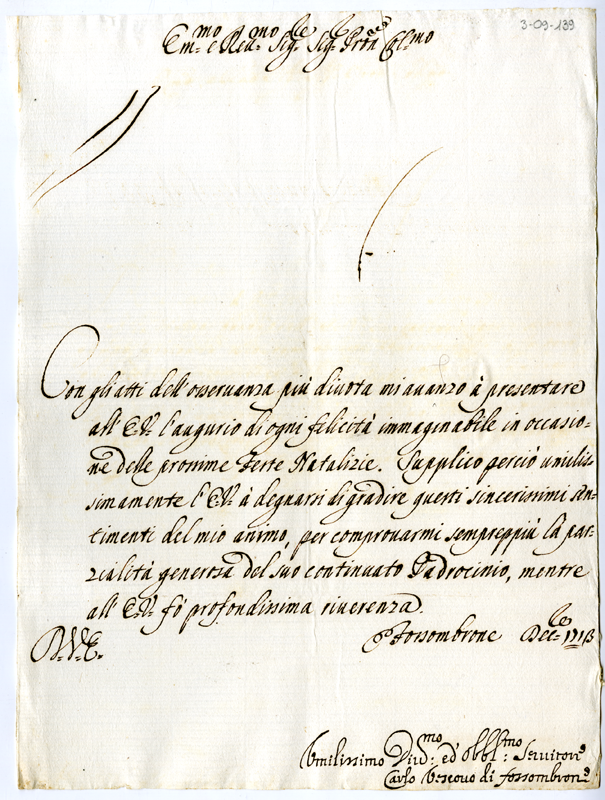 3-09-139
Em:mo e Reu:mo Sig:re Sig:re Pron: Col:mo
Con gli atti dell'osseruanza più diuota mi auanzo à presentare
all'E.V. l'augurio di ogni felicità immaginabile in occasio-
ne delle prossime Feste Natalizie. Supplico perciò umilis-
simamente l'E.V. à degnarsi di gradire questi sincerissimi sen-
timenti del mio animo, per comprouarmi sempreppiù la par-
zialità generosa del suo continuato Padrocinio, mentre
all'E.V. fò profondissima riuerenza.
D.V.E. Fossombrone Dec:re
Vmilissimo Diu:mo ed Obbl:mo Seruitore
Carlo Vescouo di Fossombrone